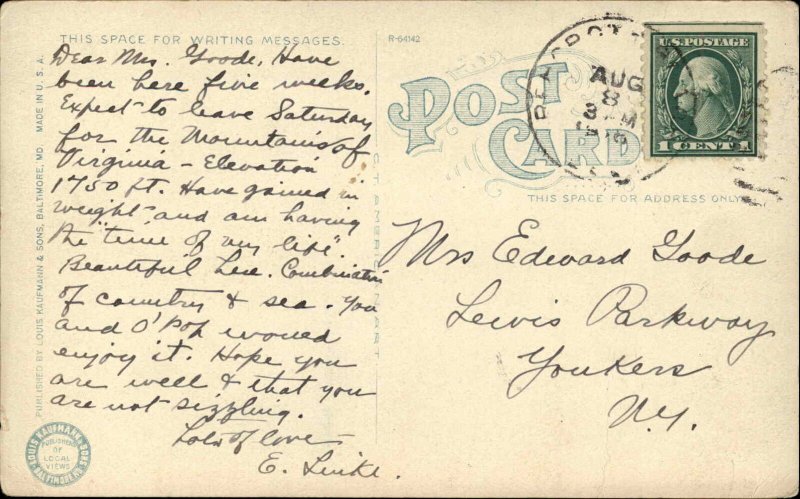 THIS SPACE FOR WRITING MESSAGES.
Dear Mrs. Goode, Have
been here five weeks.
Expect to leave Saturday
for the Mountains of
Virginia - Elevation
1750 ft. Have gained in
weight and am having
the "time of my life".
Beautiful here. Combination
of country & sea. You
and O'Pop would
enjoy it. Hope you
are well & that you
are not sizzling.
Lots of love -
E. Linke.
PUBLISHED BY LOUIS KAUFMANN & SONS, BALTIMORE, MD. MADE IN U.S.A.
LOUIS KAUFMANN & SONS
BALTIMORE, MD.
PUBLISHERS
OF
LOCAL
VIEWS
R-64142
POST
CARD
AUG
8
8 AM
U.S. POSTAGE
1 CENT 1
THIS SPACE FOR ADDRESS ONLY
Mrs Edward Goode
Lewis Parkway
Yonkers
N.Y.